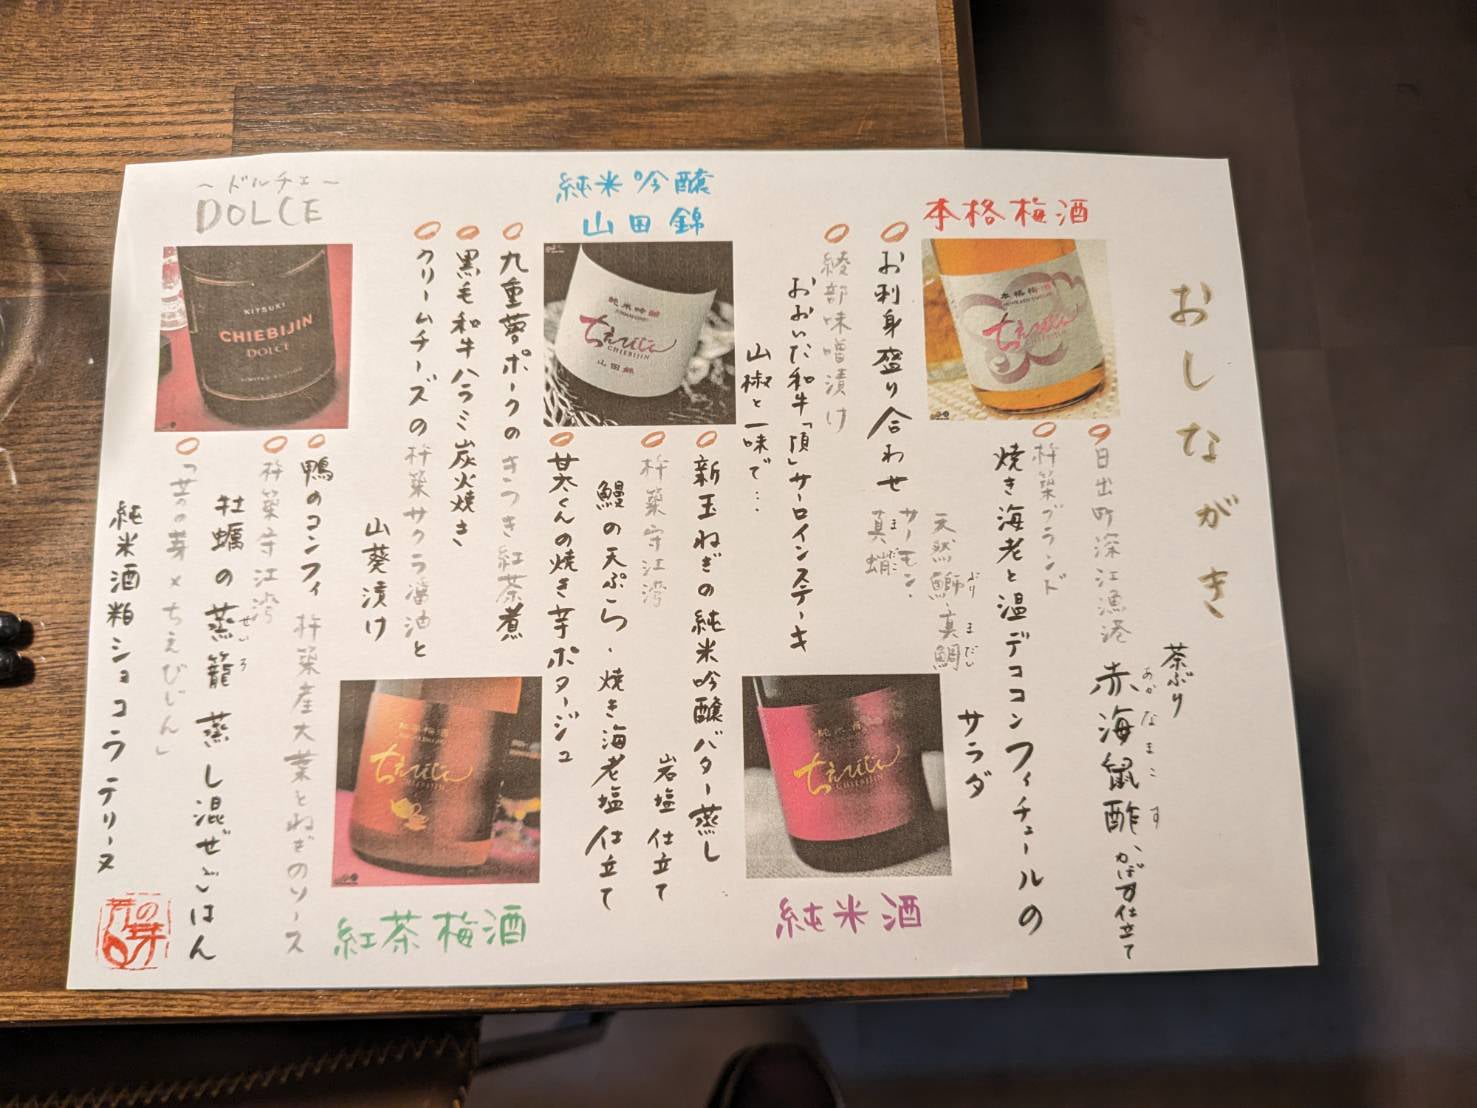 おしながき
本格梅酒
日出町深江漁港
茶ぶり
赤海鼠酢 かぼす仕立て
あかなまこす
杵築ブランド
焼き海老と温デココンフィチュールの
サラダ
お利身盛り合わせ
天然鰤・真鯛
ぶり
まだい
サーモン・
真蛸
まだこ
綾部味噌漬け
おおいた和牛「頂」サーロインステーキ
山椒と一味で…
純米酒
純米吟醸
山田錦
純米吟醸
ちえびじん
CHIEBIJIN
山田錦
新玉ねぎの純米吟醸バター蒸し
岩塩仕立て
杵築守江湾
鰻の天ぷら・焼き海老塩仕立て
甘太くんの焼き芋ポタージュ
九重夢ポークのきつき紅茶煮
黒毛和牛ハラミ炭火焼き
クリームチーズの杵築サクラ醤油と
山葵漬け
紅茶梅酒
ちえびじん
CHIEBIJIN
~ドルチェ~
DOLCE
KITSUKI
CHIEBIJIN
DOLCE
LIMITED EDITION
鴨のコンフィ 杵築産大葉とねぎのソース
杵築守江湾
牡蠣の蒸籠蒸し混ぜごはん
せいろ
「芳の芽×ちえびじん」
純米酒粕ショコラテリーヌ
本格梅酒
ちえびじん
CHIEBIJIN
純米酒
ちえびじん
CHIEBIJIN